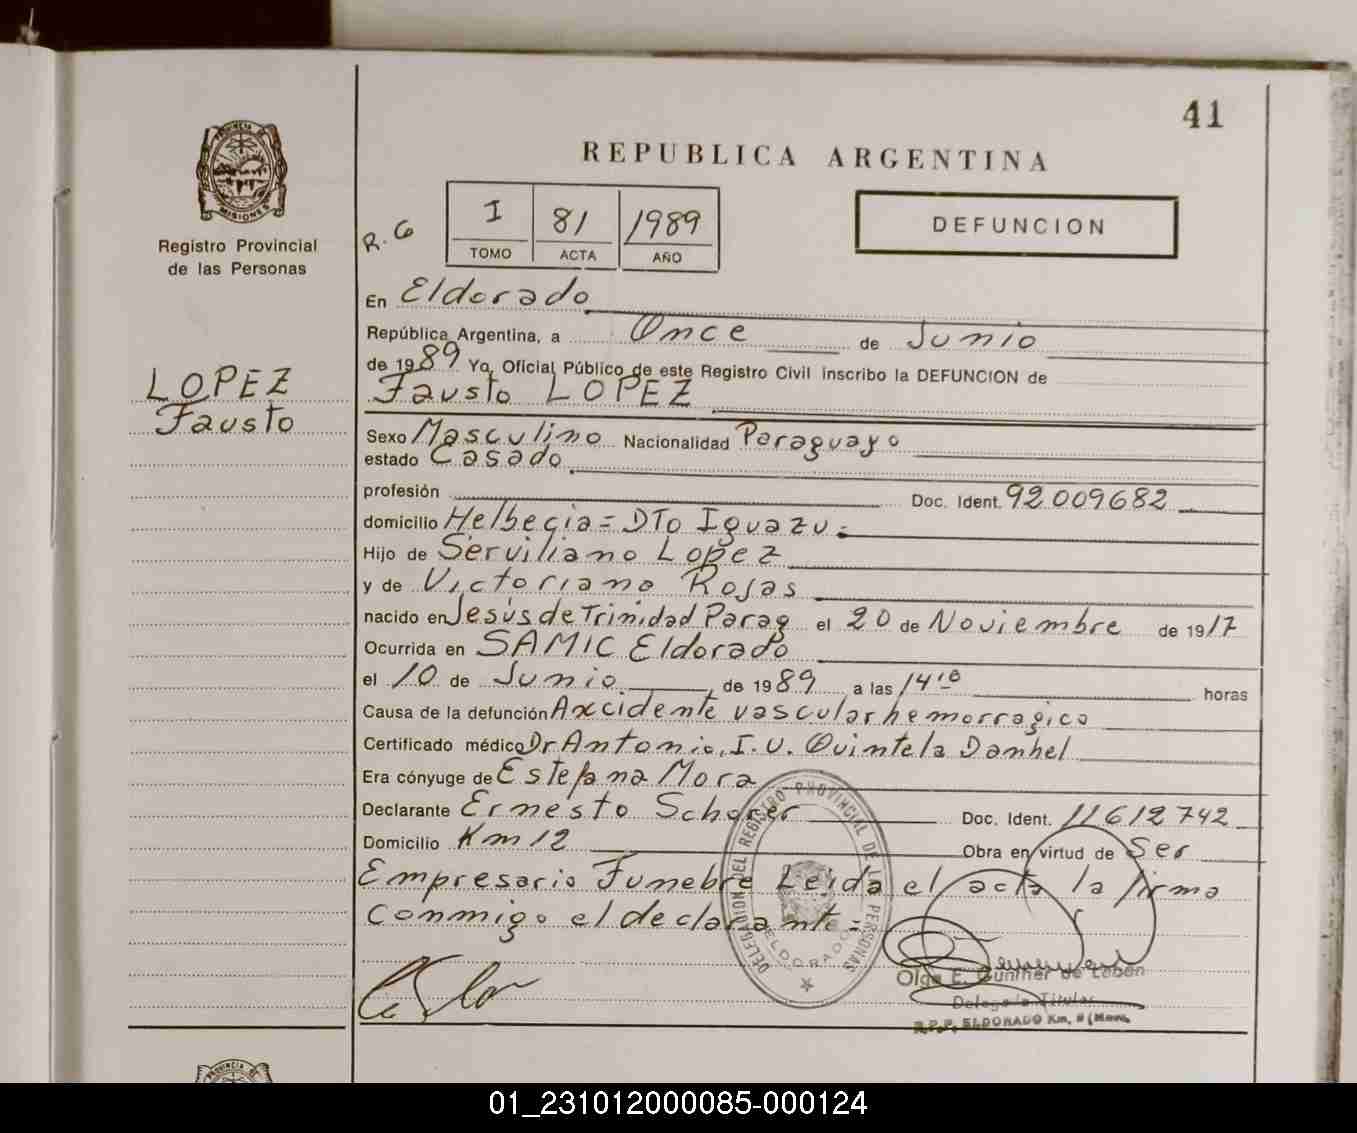 41
REPUBLICA ARGENTINA
PROVINCIA DE MISIONES
Registro Provincial
de las Personas
R.G
I 81 1989
TOMO ACTA AÑO
DEFUNCION
LOPEZ
Fausto
En Eldorado
República Argentina, a Once de Junio
de 1989 Yo, Oficial Público de este Registro Civil inscribo la DEFUNCION de
Fausto LOPEZ
Sexo Masculino Nacionalidad Paraguayo
estado Casado
profesión Doc. Ident. 92009682
domicilio Helbecia = DTo Iguazu.
Hijo de Serviliano Lopez
y de Victoriana Rojas
nacido en Jesús de Trinidad Parag el 20 de Noviembre de 1917
Ocurrida en SAMIC Eldorado
el 10 de Junio de 1989 a las 14 10 horas
Causa de la defunción Axcidente vascular hemorragico
Certificado médico Dr Antonio, I.U. Quintela Danhel
Era cónyuge de Estefana Mora
Declarante Ernesto Schorer Doc. Ident. 11612742
Domicilio Km 12 Obra en virtud de Ser
Empresario Funebre Leida el acta la firma
conmigo el declarante =
DELEGACION DEL REGISTRO PROVINCIAL DE LA PERSONAS
ELDORADO
Olga E. Günther de Lobón
Delegada Titular
R.P.P. ELDORADO Km. 9 (Mnes.
PROVINCIA DE
01_231012000085-000124